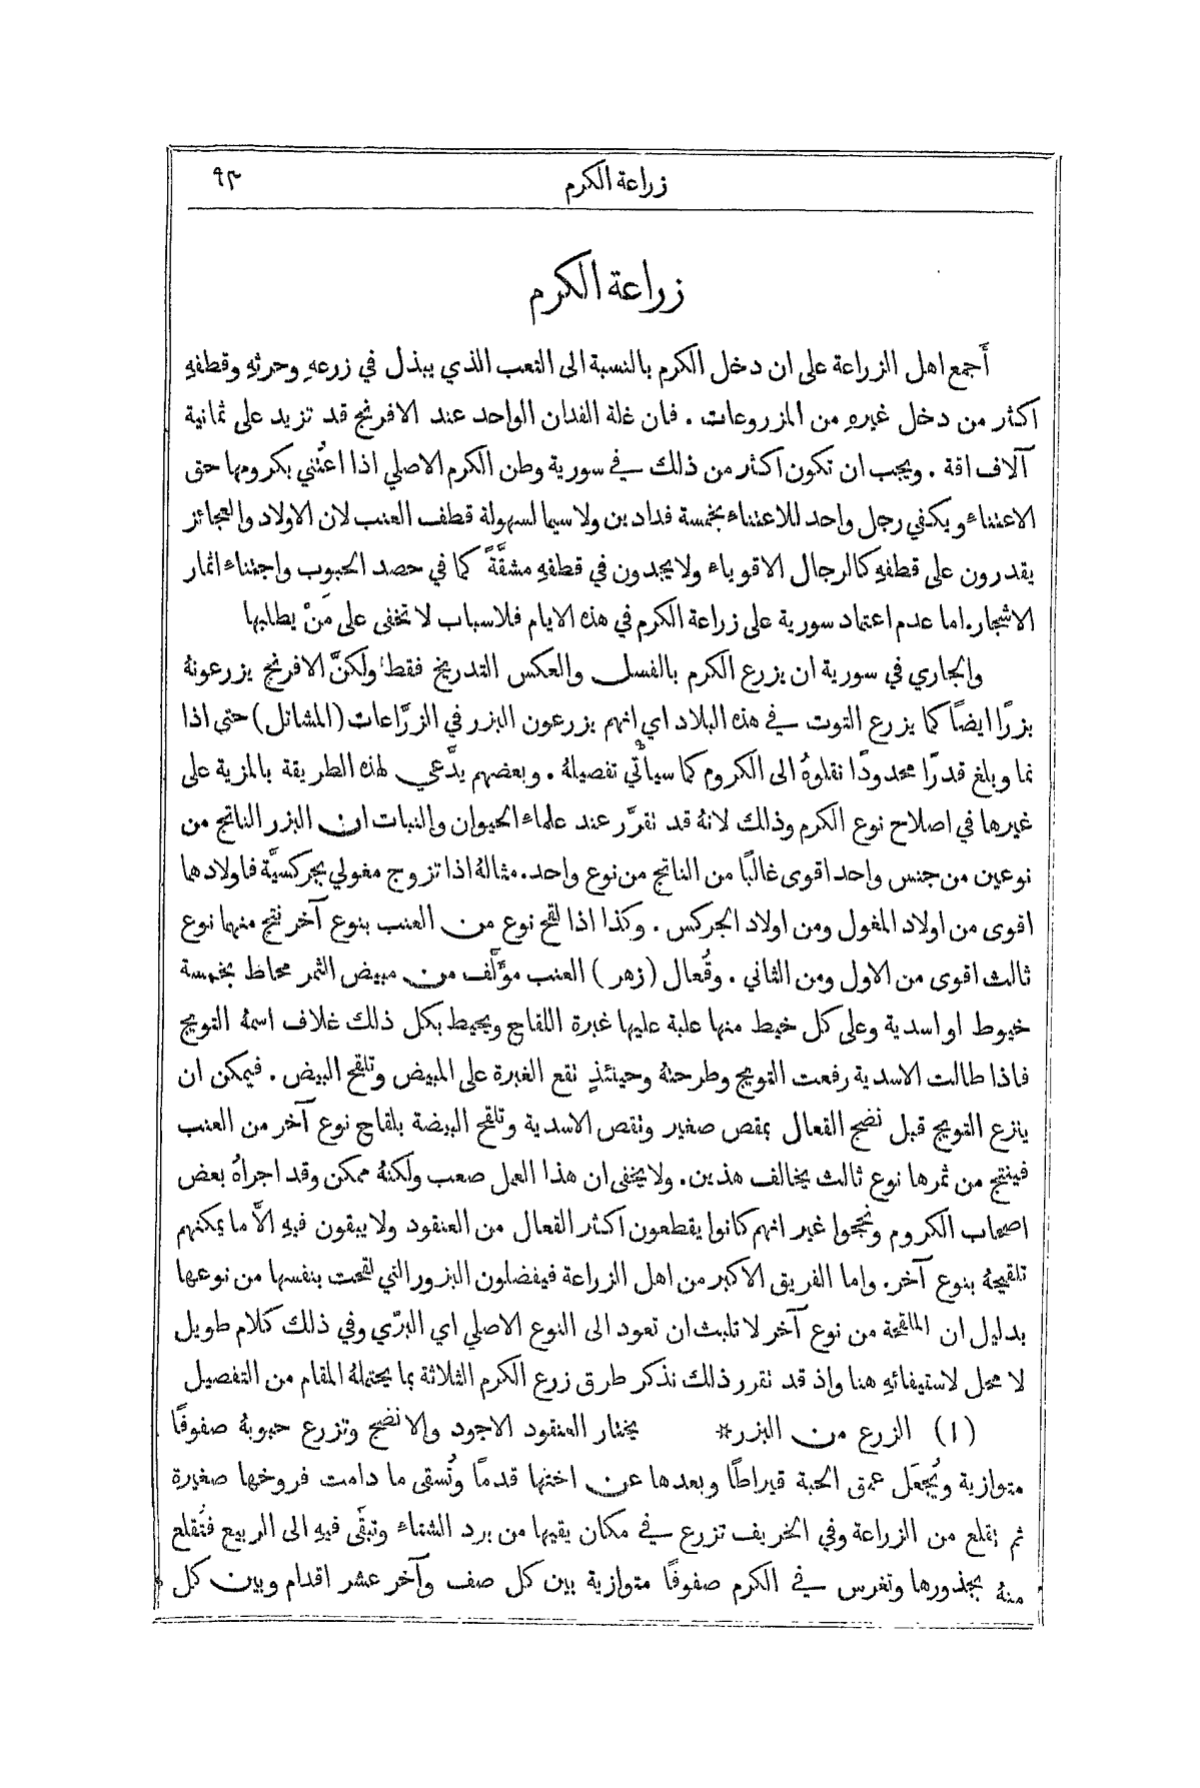 زراعة الكرم ٩٣
زراعة الكرم
أَجمع اهل الزراعة على ان دخل الكرم بالنسبة الى التعب الذي يبذل في زرعهِ وحرثهِ وقطفهِ
اكثر من دخل غيرهِ من المزروعات . فان غلة الفدان الواحد عند الافرنج قد تزيد على ثمانية
آلاف اقة . ويجب ان تكون اكثر من ذلك في سورية وطن الكرم الاصلي اذا اعتُني بكرومها حق
الاعتناء ويكفي رجل واحد للاعتناء بخمسة فدادين ولاسيما لسهولة قطف العنب لان الاولاد والعجائز
يقدرون على قطفهِ كالرجال الاقوياء ولا يجدون في قطفهِ مشقَّةً كما في حصد الحبوب واجتناء اثمار
الاشجار. اما عدم اعتماد سورية على زراعة الكرم في هذه الايام فلاسباب لا تخفى على مَنْ يطلبها
والجاري في سورية ان يزرع الكرم بالفسل والعكس التدريخ فقط ولكنَّ الافرنج يزرعونهُ
بزرًا ايضًا كما يزرع التوت في هذه البلاد اي انهم يزرعون البزر في الزرَّاعات (المشاتل) حتى اذا
نما وبلغ قدرًا محدودًا نقلوهُ الى الكروم كما سيأتي تفصيلهُ . وبعضهم يدَّعي لهذه الطريقة بالمزية على
غيرها في اصلاح نوع الكرم وذلك لانهُ قد تقرَّر عند علماء الحيوان والنبات ان البزر الناتج من
نوعين من جنس واحد اقوى غالبًا من الناتج من نوع واحد. مثالهُ اذا تزوج مغولي بجركسيَّة فاولادها
اقوى من اولاد المغول ومن اولاد الجركس . وكذا اذا لقح نوع من العنب بنوع آخر نتج منهما نوع
ثالث اقوى من الاول ومن الثاني . وفُعال (زهر) العنب مؤَلَّف من مبيض الثمر محاط بخمسة
خيوط او اسدية وعلى كل خيط منها علبة عليها غبرة اللقاح ويحيط بكل ذلك غلاف اسمهُ التويج
فاذا طالت الاسدية رفعت التويج وطرحتهُ وحينئذٍ تقع الغبرة على المبيض وتلقح البيض . فيمكن ان
ينزع التويج قبل نضج الفعال بمقص صغير وتقص الاسدية وتلقح البيضة بلقاح نوع آخر من العنب
فينتج من ثمرها نوع ثالث يخالف هذين. ولا يخفى ان هذا العمل صعب ولكنهُ ممكن وقد اجراهُ بعض
اصحاب الكروم ونجحوا غير انهم كانوا يقطعون اكثر الفعال من العنقود ولا يبقون فيهِ الاَّ ما يمكنهم
تلقيحهُ بنوع آخر. واما الفريق الاكبر من اهل الزراعة فيفضلون البزور التي لقحت بنفسها من نوعها
بدليل ان الملقحة من نوع آخر لا تلبث ان تعود الى النوع الاصلي اي البرّي وفي ذلك كلام طويل
لا محل لاستيفائهِ هنا واذ قد تقرر ذلك نذكر طرق زرع الكرم الثلاثة بما يحتملهُ المقام من التفصيل
(١) الزرع من البزر* يختار العنقود الاجود والانضج وتزرع حبوبهُ صفوفًا
متوازية ويُجعَل عمق الحبة قيراطًا وبعدها عن اختها قدمًا وتُسقى ما دامت فروخها صغيرة
ثم تقلع من الزراعة وفي الخريف تزرع في مكان يقيها من برد الشتاء وتبقَى فيهِ الى الربيع فتُقلع
منهُ بجذورها وتغرس في الكرم صفوفًا متوازية بين كل صف وآخر عشر اقدام وبين كل